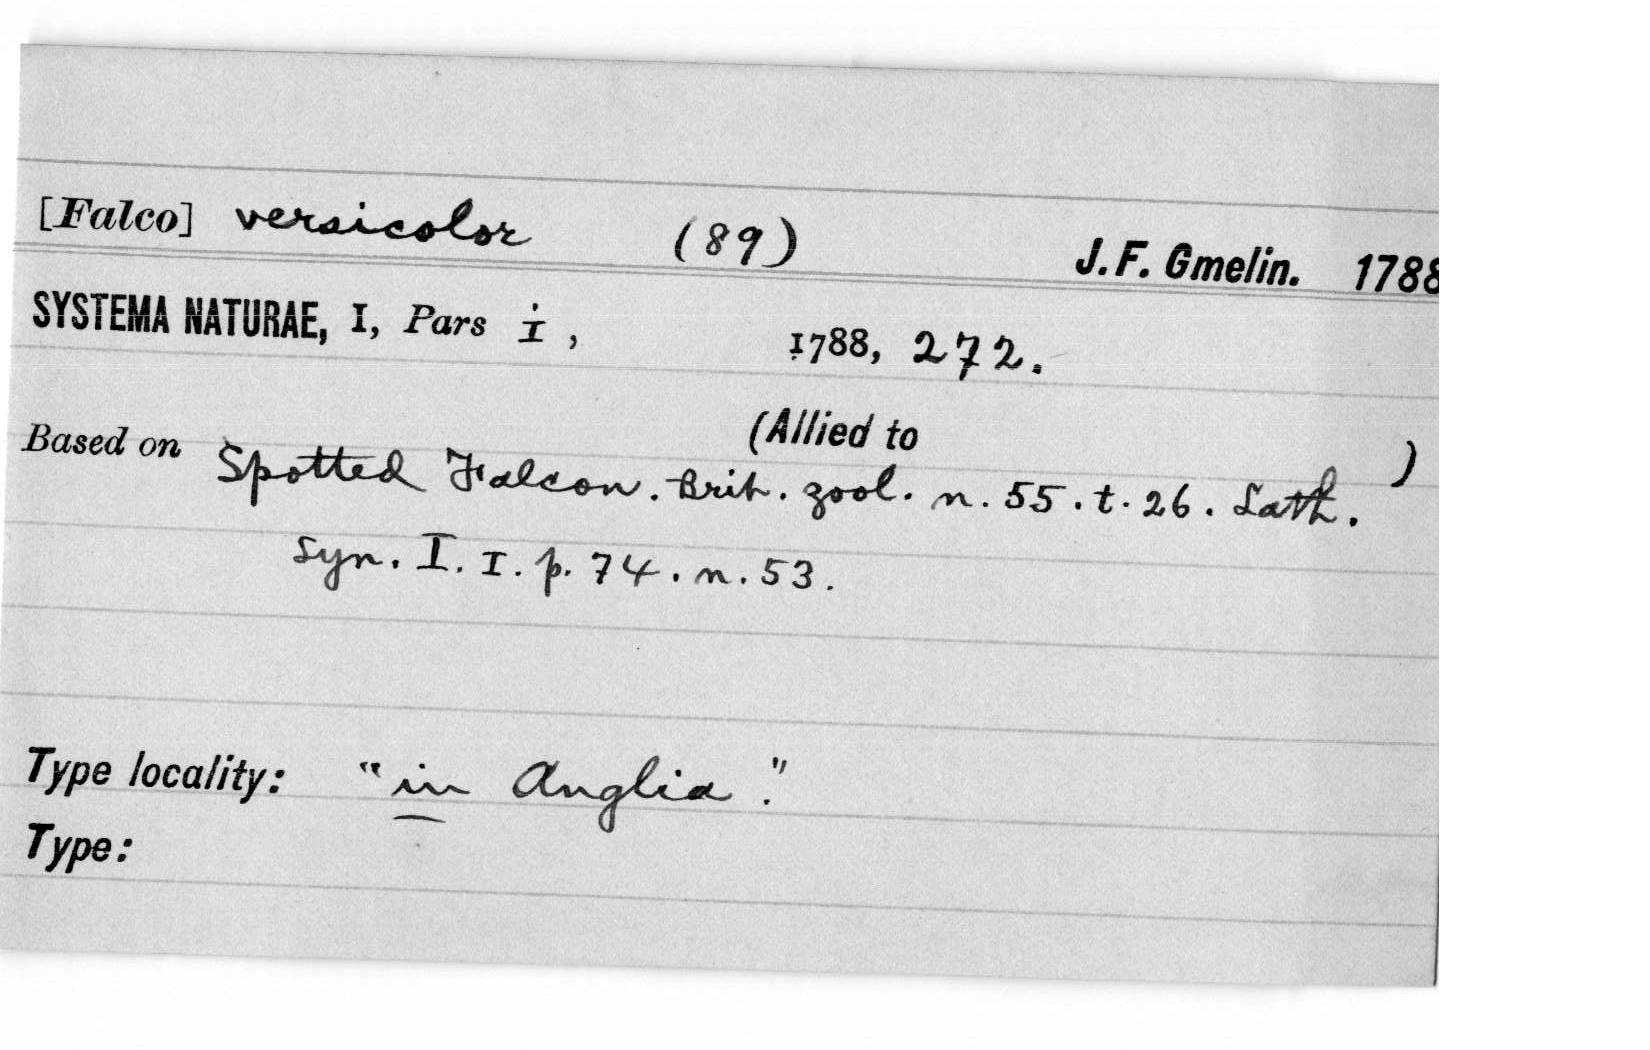 [Falco] versicolor (89) J. F. Gmelin. 1788
SYSTEMA NATURAE, I, Pars i, 1788, 272.
(Allied to )
Based on Spotted Falcon. Brit. zool. n. 55. t. 26. Lath.
Syn. I. I. p. 74. n. 53.
Type locality: "in Anglia."
Type: